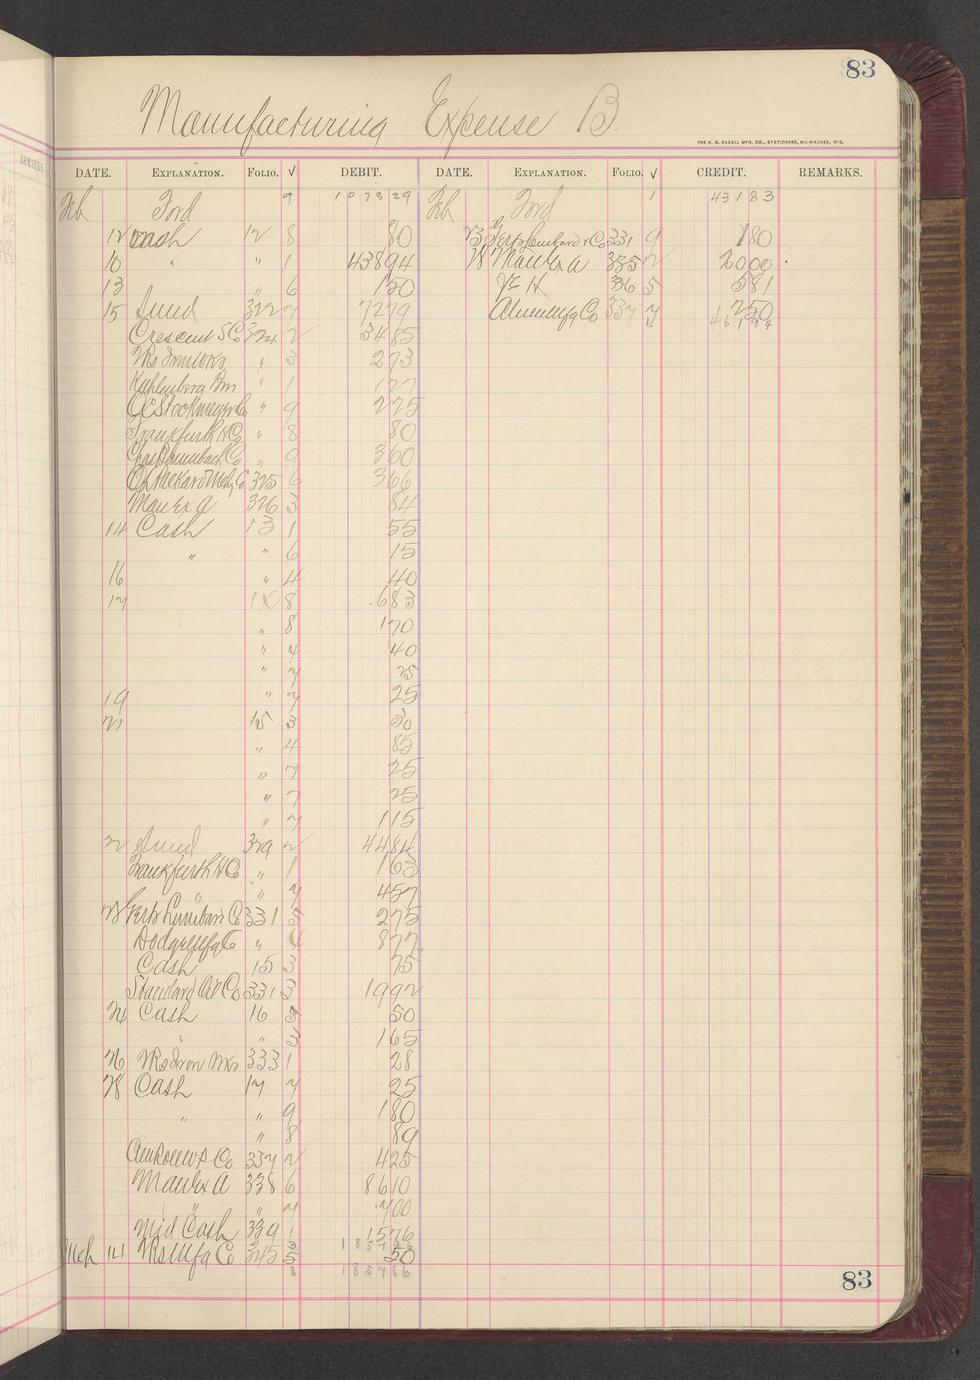 83
Manufacturing Expense B.
THE H. G. RAZALL MFG. CO., STATIONERS, MILWAUKEE, WIS.
DATE. EXPLANATION. FOLIO. √ DEBIT. DATE. EXPLANATION. FOLIO. √ CREDIT. REMARKS.
Feb Ford 9 1078 29 Feb Ford 1 431 83
12 Cash 12 8 80 23 Lombard & Co 331 9 1 80
10 " " 1 438 94 28 Man Ex A 335 2 20 00
13 " 6 1 50 336 5 5 81
15 Sund 322 7 72 79 Co 337 7 2 50
461 94
Crescent S Co 324 2 34 85
" 3 2 73
Kahlenberg Bros " 1 1 27
Stockmeyer Co " 9 2 25
Frankfurth H Co " 8 80
Co " 9 3 60
Packard Co 325 6 3 66
Man Ex A 326 3 84
14 Cash 13 1 55
" " 6 15
16 " 4 40
17 8 6 83
" 8 1 70
" 4 40
" 7 25
19 " 7 25
21 15 3 30
" 4 85
" 7 25
" 7 25
" 7 1 15
22 Sund 329 2 44 84
Frankfurth H Co " 1 1 63
" " 7 4 57
23 Co 331 5 2 75
Dodge Mfg Co " 8 77
Cash 15 3 75
Standard Oil Co 331 3 19 92
24 Cash 16 50
" " 3 1 65
26 Iron Wks 333 1 28
28 Cash 17 7 25
" " 9 1 80
" 8 89
Co 337 2 4 25
Man Ex A 338 6 86 10
" 7 7 00
Mid Cash 339 1 15 76
3 1857
Mch 14 Mfg Co 345 5 50
8 1857 86
83